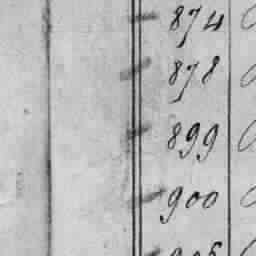 874
878
899
900